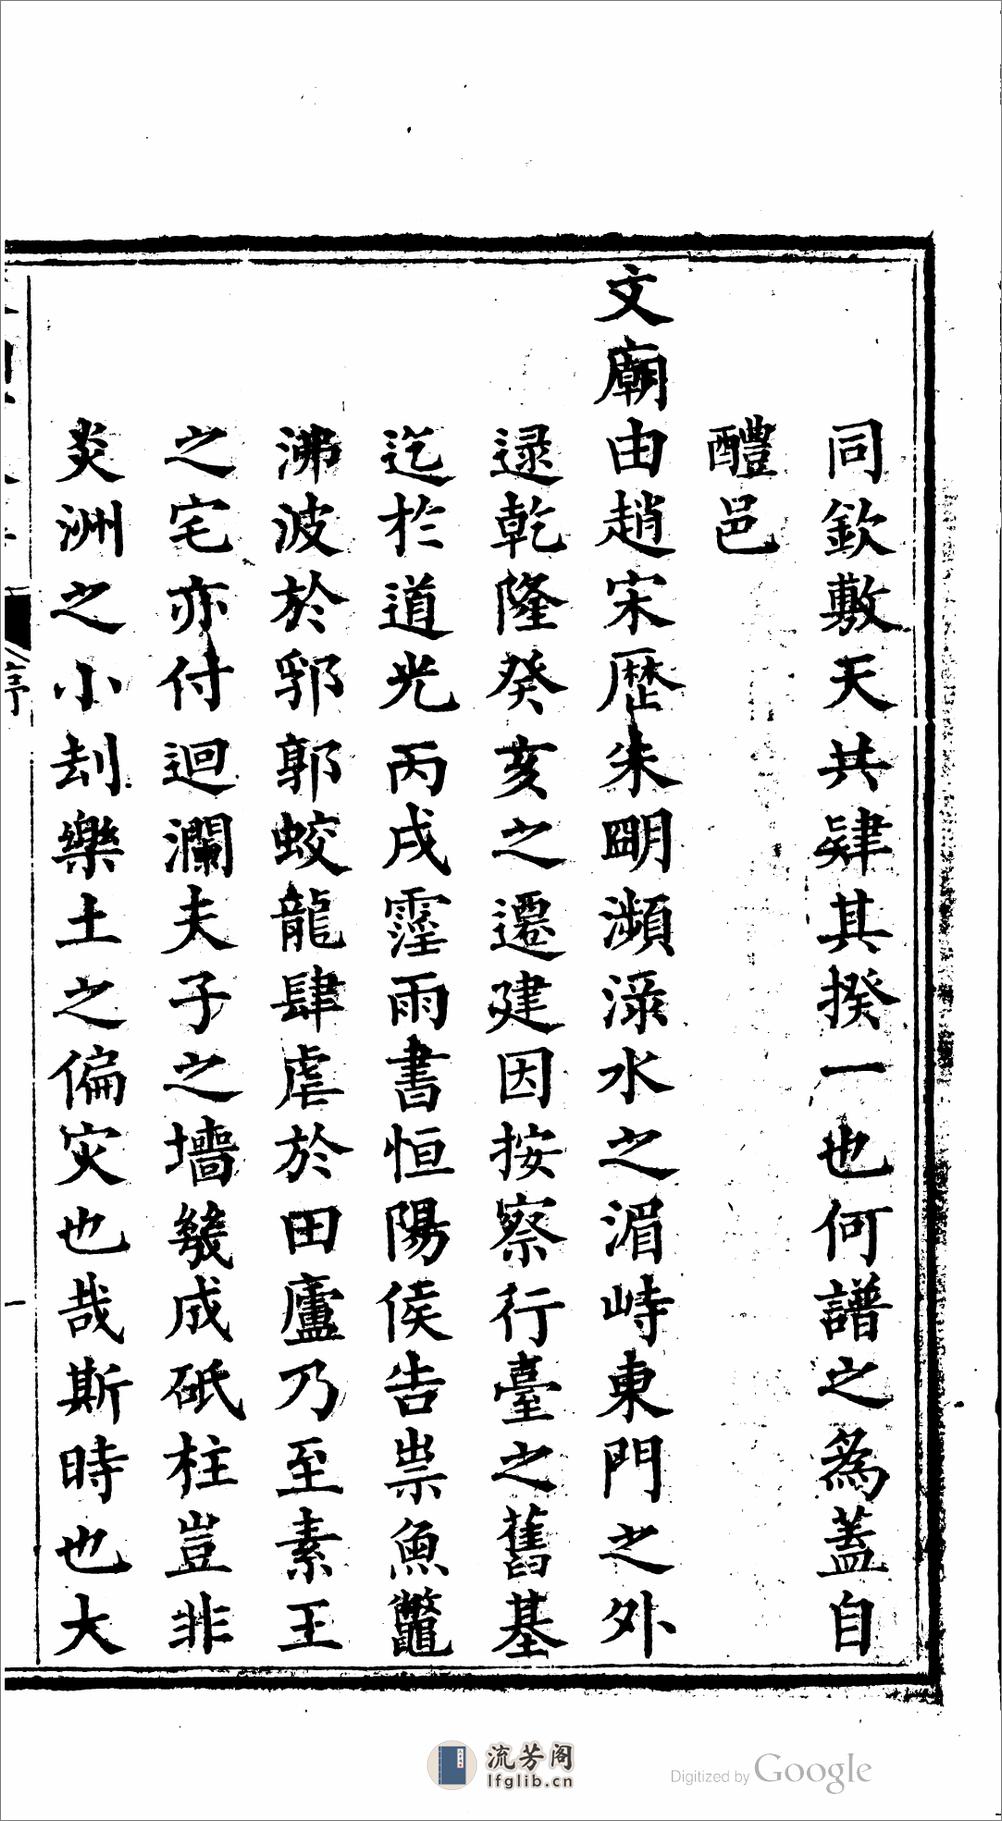 同欽敷天共肄其揆一也何譜之為蓋自
醴邑
文廟由趙宋歷朱明瀕淥水之湄峙東門之外
逯乾隆癸亥之遷建因按察行臺之舊基
迄於道光丙戌霪雨書恒陽侯告祟魚鼈
沸波於郛郭蛟龍肆虐於田廬乃至素王
之宅亦付迴瀾夫子之墻幾成砥柱豈非
炎洲之小刦樂土之偏灾也哉斯時也大
序
一
流芳阁
lfglib.cn
Digitized by Google